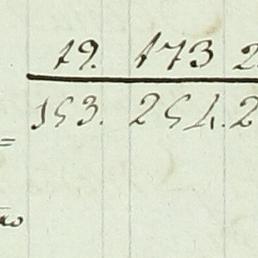 19. 173 2
153. 254. 2
=